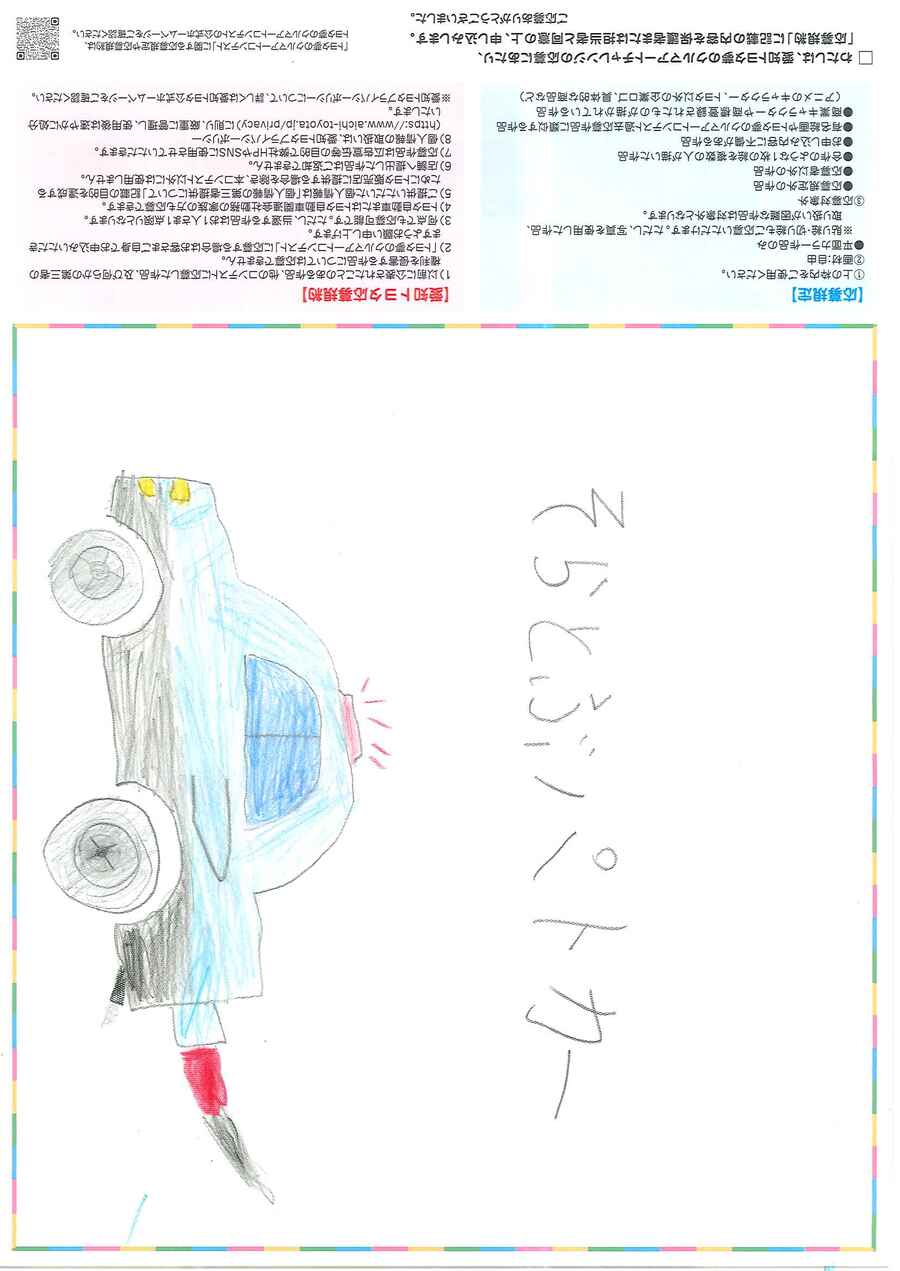 そらとぶパトカー
【応募規定】
①上の枠内をご使用ください。
②画材:自由
●平面カラー作品のみ
※貼り絵・切り絵もご応募いただけます。ただし、写真を使用した作品、
取り扱いが困難な作品は対象外となります。
③応募対象外
●応募規定外の作品
●応募者以外の作品
●合作のような1枚の絵を複数の人が描いた作品
●お申し込み内容に不備がある作品
●有名絵画やトヨタ夢のクルマアートコンテスト過去応募作品に類似する作品
●商業キャラクターや商標登録されたものが描かれている作品
(アニメのキャラクター、トヨタ以外の企業ロゴ、具体的な商品など)
【愛知トヨタ応募規約】
1)以前に公表されたことのある作品、他のコンテストに応募した作品、及び何らかの第三者の
権利を侵害する作品については応募できません。
2)「トヨタ夢のクルマアートコンテスト」に応募する場合はお客さまご自身でお申込みいただき
ますようお願い申し上げます。
3)何点でも応募可能です。ただし、当選する作品はお1人さま1点限りとなります。
4)トヨタ自動車またはトヨタ自動車関連会社勤務の家族の方も応募できます。
5)ご提供いただいた個人情報は「個人情報の第三者提供について」記載の目的を達成する
ためにトヨタ販売店に提供する場合を除き、本コンテスト以外には使用しません。
6)店舗へ提出した作品はご返却できません。
7)応募作品は広告宣伝等の目的で弊社HPやSNSに使用させていただきます。
8)個人情報の取扱いは、愛知トヨタプライバシーポリシー
(https://www.aichi-toyota.jp/privacy)に則り、厳重に管理し、使用後は速やかに処分
いたします。
※愛知トヨタプライバシーポリシーについて、詳しくは愛知トヨタ公式ホームページをご確認ください。
□わたしは、愛知トヨタ夢のクルマアートチャレンジの応募にあたり、
「応募規約」に記載の内容を保護者または担当者と同意の上、申し込みします。
ご応募ありがとうございました。
「トヨタ夢のクルマアートコンテスト」に関する応募規定や応募規約は、
トヨタ夢のクルマアートコンテストの公式ホームページをご確認ください。